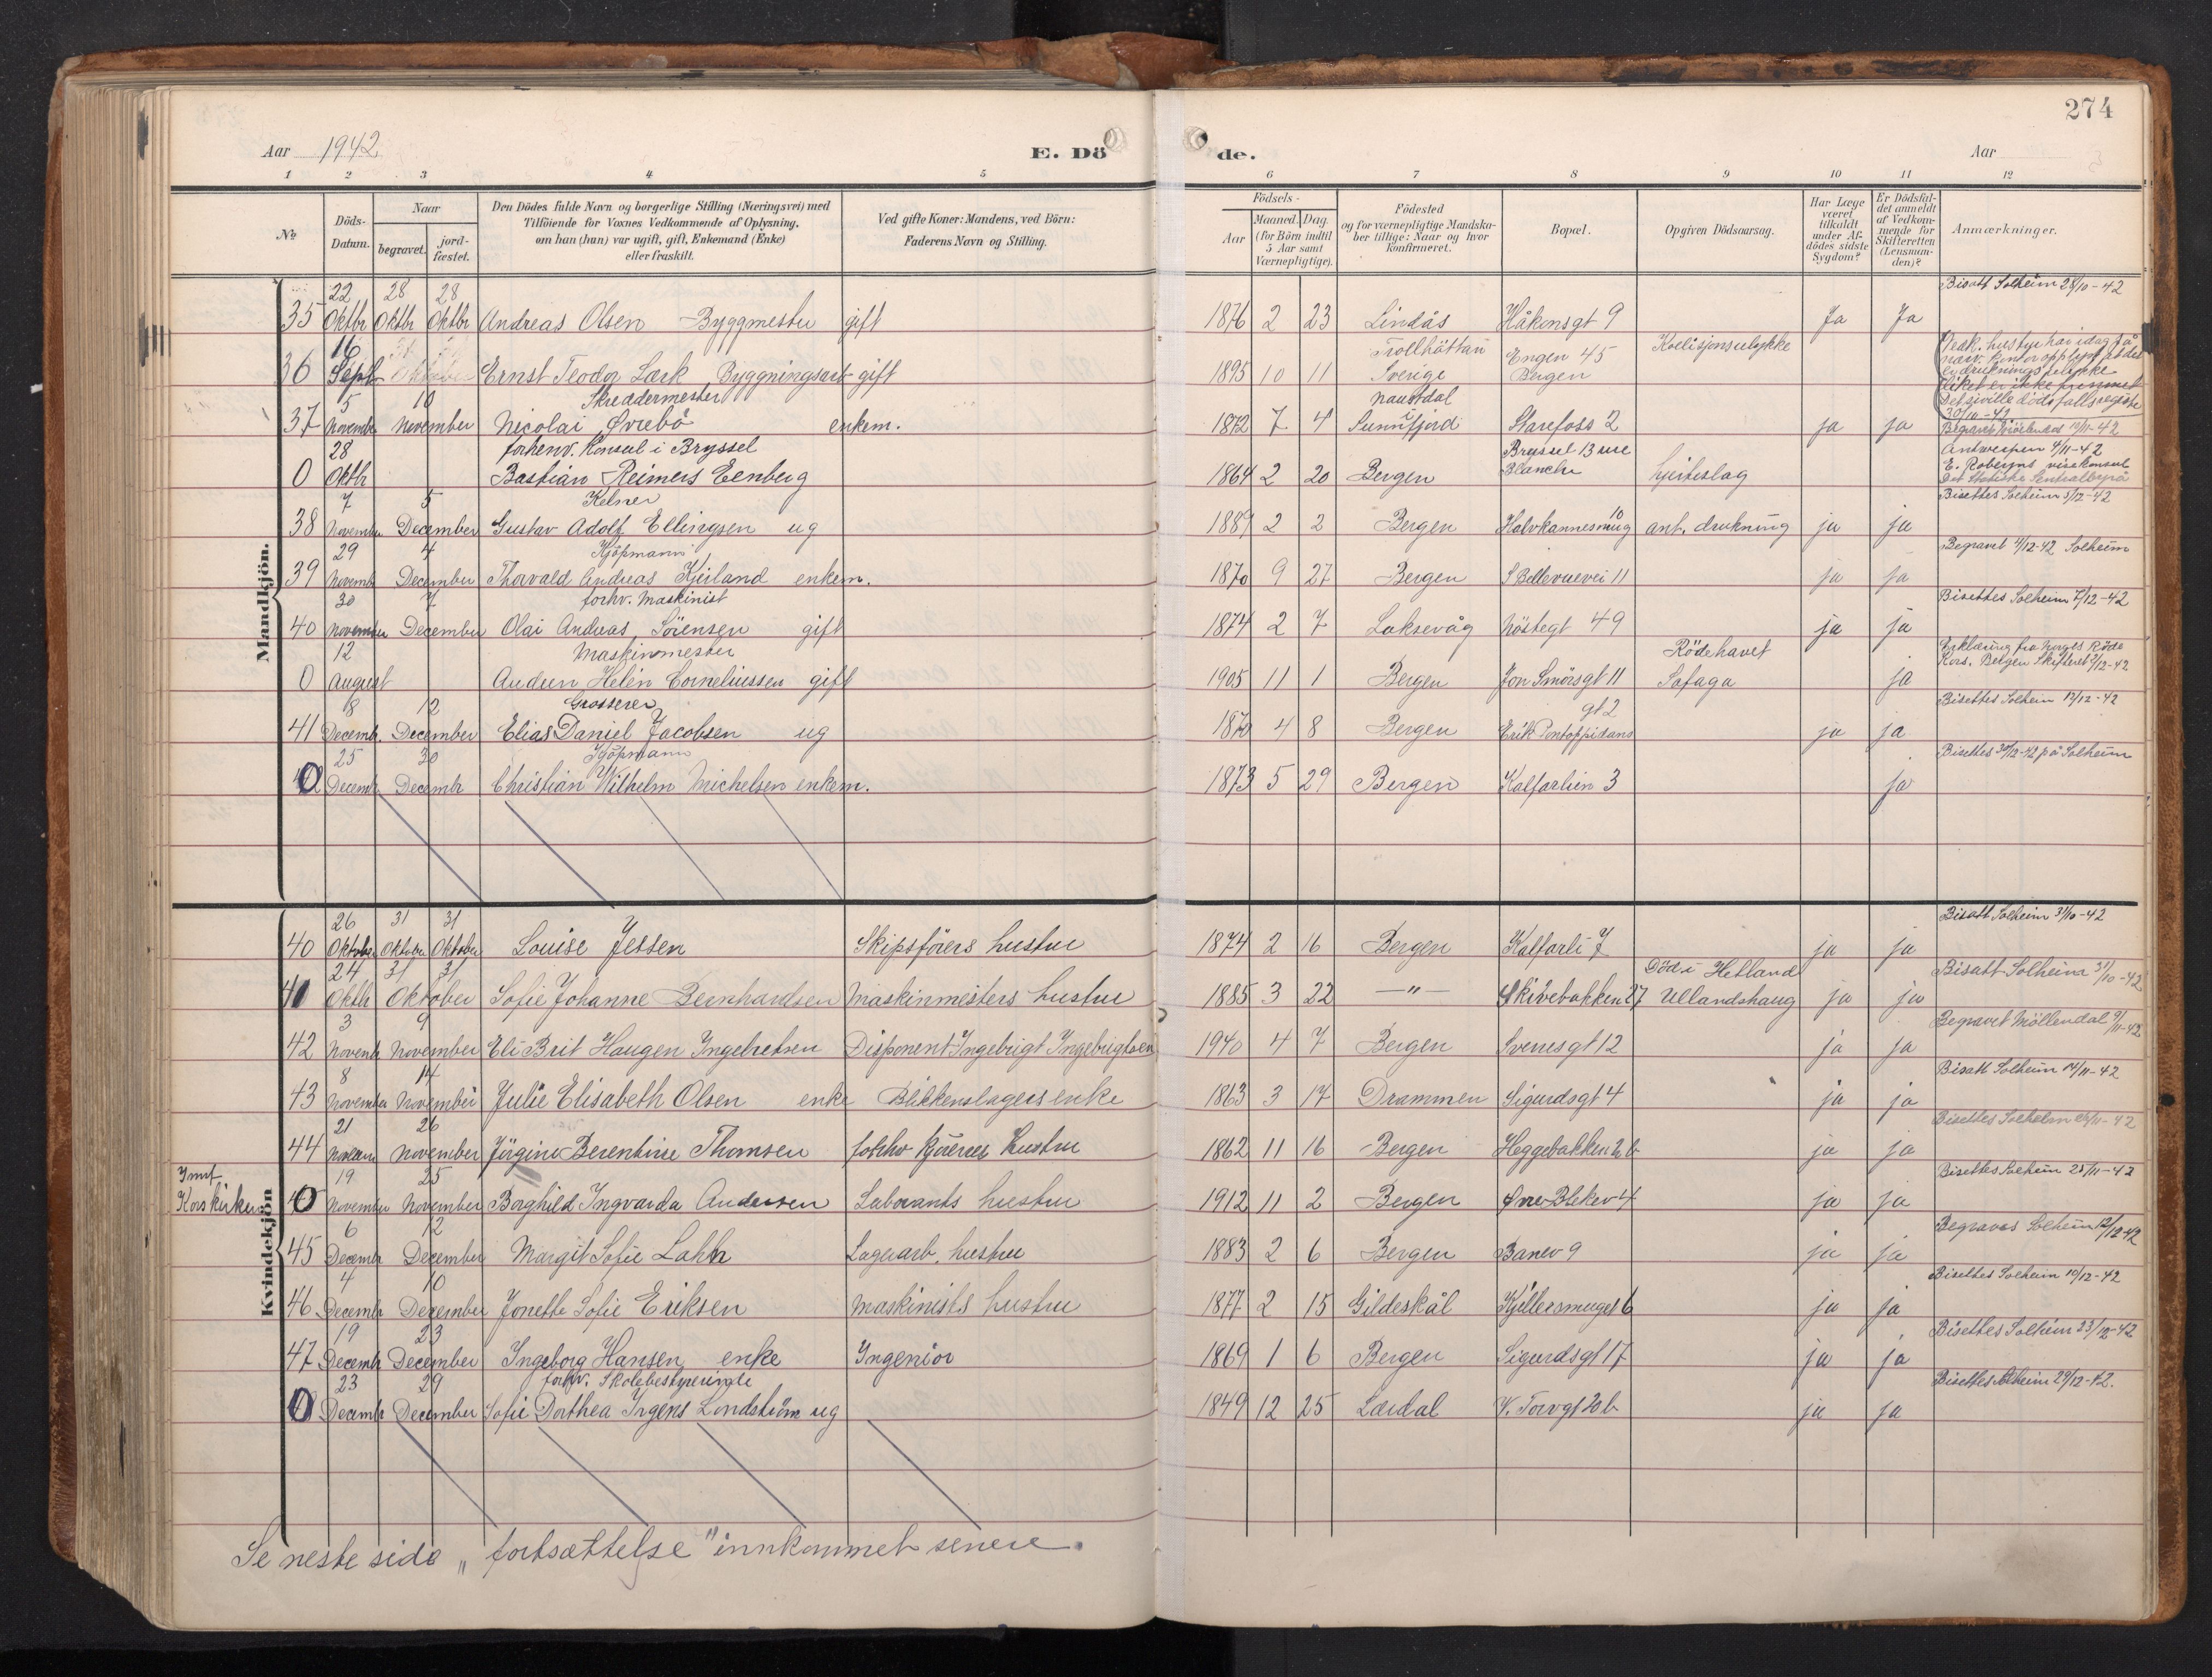 274
Aar 1942 E. Dö de. Aar
1 2 3 4 5 6 7 8 9 10 11 12
№
Döds-Datum.
Naar
begravet.
jord-fæstet.
Den Dödes fulde Navn og borgerlige Stilling (Næringsvei) med
Tilföiende for Voxnes Vedkommende af Oplysning,
om han (hun) var ugift, gift, Enkemand (Enke)
eller fraskilt.
Ved gifte Koner: Mandens, ved Börn:
Faderens Navn og Stilling.
Födsels-
Aar
Maaned. Dag.
(for Börn indtil
5 Aar samt
Værnepligtige).
Födested
og for værnepligtige Mandska-
ber tillige: Naar og hvor
konfirmeret.
Bopæl.
Opgiven Dödsaarsag.
Har Læge
været
tilkaldt
under Af-
dödes sidste
Sygdom?
Er Dödsfal-
det anmeldt
af Vedkom-
mende for
Skifteretten
(Lensman-
den)?
Anmærkninger.
Mandkjön.
22 28 28 Bisatt Solheim 28/10-42
35 Oktbr Oktbr Oktbr Andreas Olsen Byggmester gift 1876 2 23 Lindås Håkonsgt 9 Ja Ja
16 Trollhättan Engen 45 Kollisjonsulykke
36 Sept Ernst Teodor Lark Byggningsark gift 1895 10 11 Sverige Bergen
5 10 Skreddermester Naustdal i
37 November November Nicolai Øvrebö enkem. 1872 7 4 Sunnfjord Starefoss 2 ja ja
30/11-42
Begravet Möllendal 10/11-42
28 forhenv. Konsul i Bryssel Brussel 13 rue Antwerpen 4/11-42
0 Oktbr Bastian Reimers Eenberg 1864 2 20 Bergen Blanche hjerteslag E. Roberyns visekonsul
Det Statistiske Sentralbyrå
7 5 Kelner Bisettes Solheim 5/12-42
38 November December Gustav Adolf Ellingsen ug 1889 2 2 Bergen Halvkannesmug 10 ant. drukning ja ja
29 4 Kjöpmann Begravet 4/12-42 Solheim
39 Novemb December Thorvald Andreas Kjeiland enkem. 1870 9 27 Bergen S Bellevuevei 11 ja ja
30 7 forhv. Maskinist Bisettes Solheim 7/12-42
40 November December Olai Andreas Sörensen gift 1874 2 7 Laksevåg Nöstegt 49 ja ja
12 Maskinmester Rödehavet Erklæring fra Norges Röde
0 August Audun Helén Corneliussen gift 1905 11 1 Bergen Jon Smörsgt 11 Safaga ja Kors. Bergen Skifteret 9/12-42
8 12 Grosserer gt 2 Bisettes Solheim 12/12-42
41 Decemb. December Elias Daniel Jacobsen ug 1870 4 8 Bergen Erik Pontoppidans ja ja
25 30 Kjöpmann Bisettes 30/12-42 på Solheim
0 Decemb Decembr Christian Wilhelm Michelsen enkem. 1873 5 29 Bergen Kalfarlien 3 ja
Kvindekjön
26 31 31 Bisatt Solheim 31/10-42
40 Oktober Oktober Oktober Louise Jessen Skipsförers hustru 1874 2 16 Bergen Kalfarli 7 ja ja
24 31 31 Död i Hetland Bisatt Solheim 31/10-42
41 Oktb Oktober Sofie Johanne Bernhardsen Maskinmesters hustru 1885 3 22 —"— Skivebakken 27 Ullandshaug ja ja
3 9 Begravet Möllendal 9/11-42
42 Novemb November Eli Brit Haugen Ingebretsen Disponent Ingebrigt Ingebrigtsen 1940 4 7 Bergen Sverresgt 12 ja ja
8 14 Bisatt Solheim 14/11-42
43 November November Julie Elisabeth Olsen enke Blikkenslagers enke 1863 3 17 Drammen Sigurdsgt 4 ja ja
21 26 Bisettes Solheim 26/11-42
44 November Jörgine Berentine Thomsen forhv kjörers hustru 1862 11 16 Bergen Heggebakken 2 b ja ja
Innf. 19 25 Bisettes Solheim 25/11-42
Korskirken 0 November November Borghild Ingvarda Andersen Laborants hustru 1912 11 2 Bergen Øvre Blekev 4 ja ja
6 12 Begraves Solheim 12/12-42
45 Decemb December Margit Sofie Lahti Lagerarb. hustru 1883 2 6 Bergen Banev 9 ja ja
4 10 Bisettes Solheim 10/12-42
46 Decemb December Jonette Sofie Eriksen Maskinists hustru 1877 2 15 Gildeskål Kjellersmuget 6 ja ja
19 23 Bisettes Solheim 23/12-42
47 Decemb December Ingeborg Hansen enke Ingeniör 1869 1 6 Bergen Sigurdsgt 17 ja ja
23 29 forhv. Skolebestyrerinde Bisettes Solheim 29/12-42.
0 Decemb December Sofie Dorthea Irgens Lindström ug 1849 12 25 Lærdal V. Torvgt 20 b ja ja
Se neste side „fortsættelse" innkommet senere.